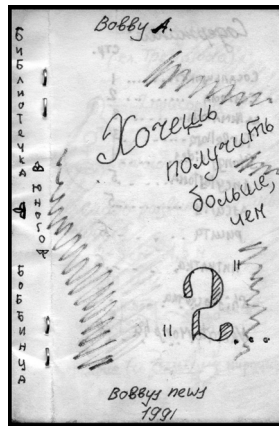 Bobby A.
БИБЛИОТЕЧКА ЮНОГО БОББИНЦА
Хочешь
получить
больше,
чем
"2"...
Bobbys news
1991